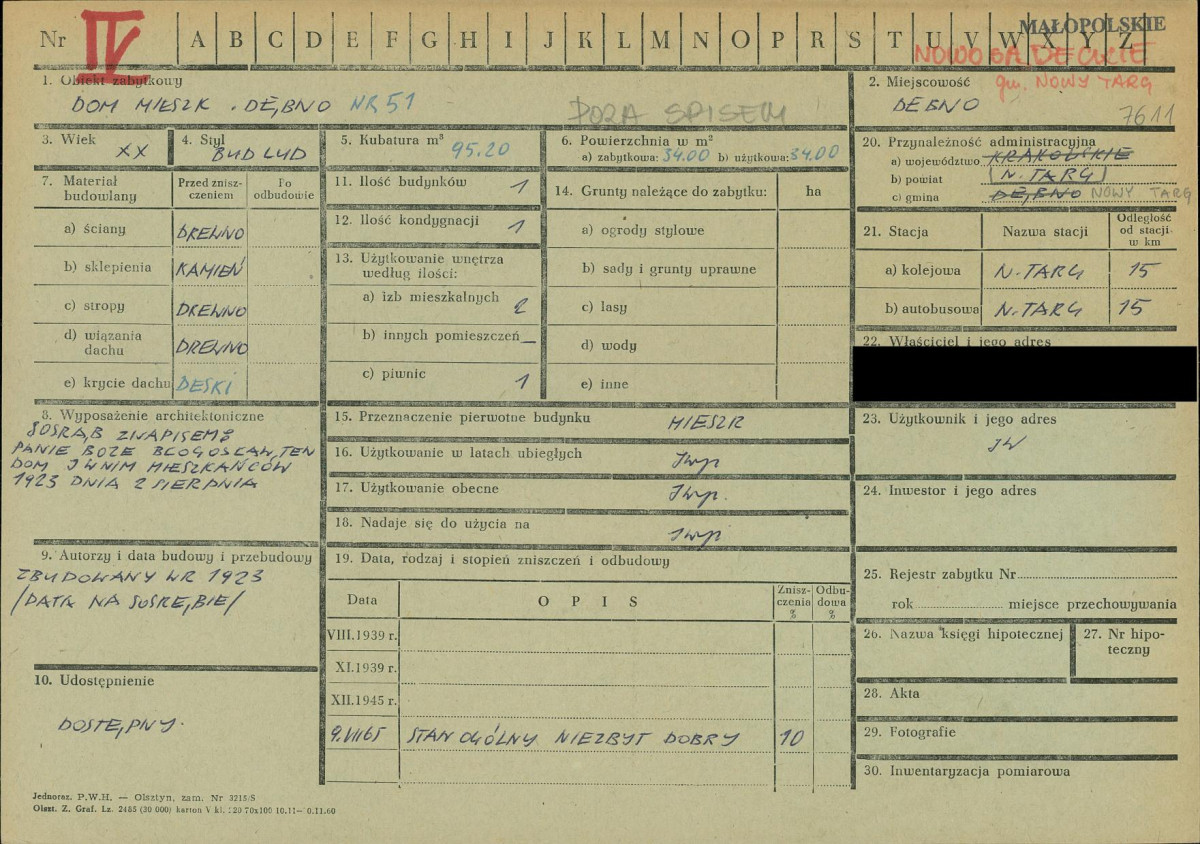 Nr IV A B C D E F G H I J K L M N O P R S T U V W X Y Z
MAŁOPOLSKIE
NOWOSĄDECKIE
gm. NOWY TARG
1. Obiekt zabytkowy
DOM MIESZK. DĘBNO NR 51
POZA SPISEM
2. Miejscowość
DĘBNO
7611
3. Wiek
XX
4. Styl
BUD LUD
5. Kubatura m³ 95.20
6. Powierzchnia w m²
a) zabytkowa: 34.00 b) użytkowa: 34.00
7. Materiał budowlany
Przed zniszczeniem
Po odbudowie
a) ściany DREWNO
b) sklepienia KAMIEŃ
c) stropy DREWNO
d) wiązania dachu DREWNO
e) krycie dachu DESKI
8. Wyposażenie architektoniczne
SOSRĄB Z NAPISEM:
PANIE BOŻE BŁOGOSŁAW, TEN
DOM I W NIM MIESZKAŃCÓW
1923 DNIA 2 SIERPNIA
9. Autorzy i data budowy i przebudowy
ZBUDOWANY W R 1923
/DATA NA SOSRĘBIE/
10. Udostępnienie
DOSTĘPNY.
11. Ilość budynków 1
12. Ilość kondygnacji 1
13. Użytkowanie wnętrza według ilości:
a) izb mieszkalnych 2
b) innych pomieszczeń —
c) piwnic 1
14. Grunty należące do zabytku: ha
a) ogrody stylowe
b) sady i grunty uprawne
c) lasy
d) wody
e) inne
15. Przeznaczenie pierwotne budynku MIESZK
16. Użytkowanie w latach ubiegłych Jwp
17. Użytkowanie obecne Jwp.
18. Nadaje się do użycia na Jwp
19. Data, rodzaj i stopień zniszczeń i odbudowy
Data OPIS Zniszczenia % Odbudowa %
VIII.1939 r.
XI.1939 r.
XII.1945 r.
9.VII65 STAN OGÓLNY NIEZBYT DOBRY 10
20. Przynależność administracyjna
a) województwo KRAKOWSKIE
b) powiat (N. TARG)
c) gmina DĘBNO NOWY TARG
21. Stacja Nazwa stacji Odległość od stacji w km
a) kolejowa N. TARG 15
b) autobusowa N. TARG 15
22. Właściciel i jego adres
23. Użytkownik i jego adres
JW
24. Inwestor i jego adres
25. Rejestr zabytku Nr
rok miejsce przechowywania
26. Nazwa księgi hipotecznej
27. Nr hipoteczny
28. Akta
29. Fotografie
30. Inwentaryzacja pomiarowa
Jednoraz. P.W.H. — Olsztyn, zam. Nr 3215/S
Olszt. Z. Graf. Lz. 2455 (30 000) karton V kl.